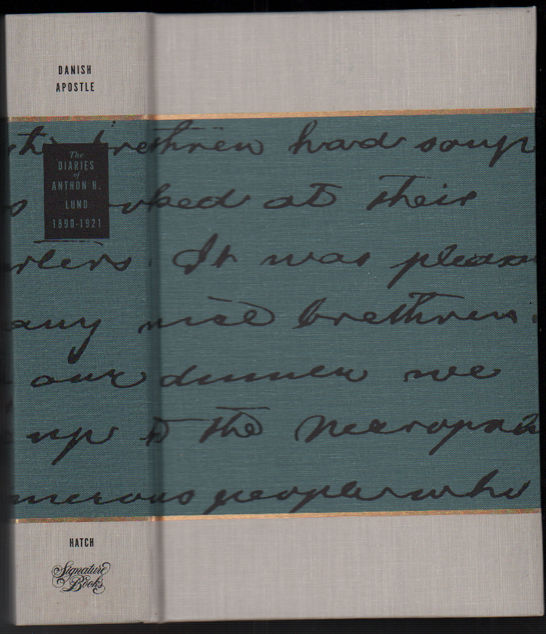 DANISH
APOSTLE
The
DIARIES
of
ANTHON H.
LUND
1890-1921
brethren had soup
at their
It was pleas
any nice brethren.
our dinner we
up to the
merous people who
HATCH
Signature
Books